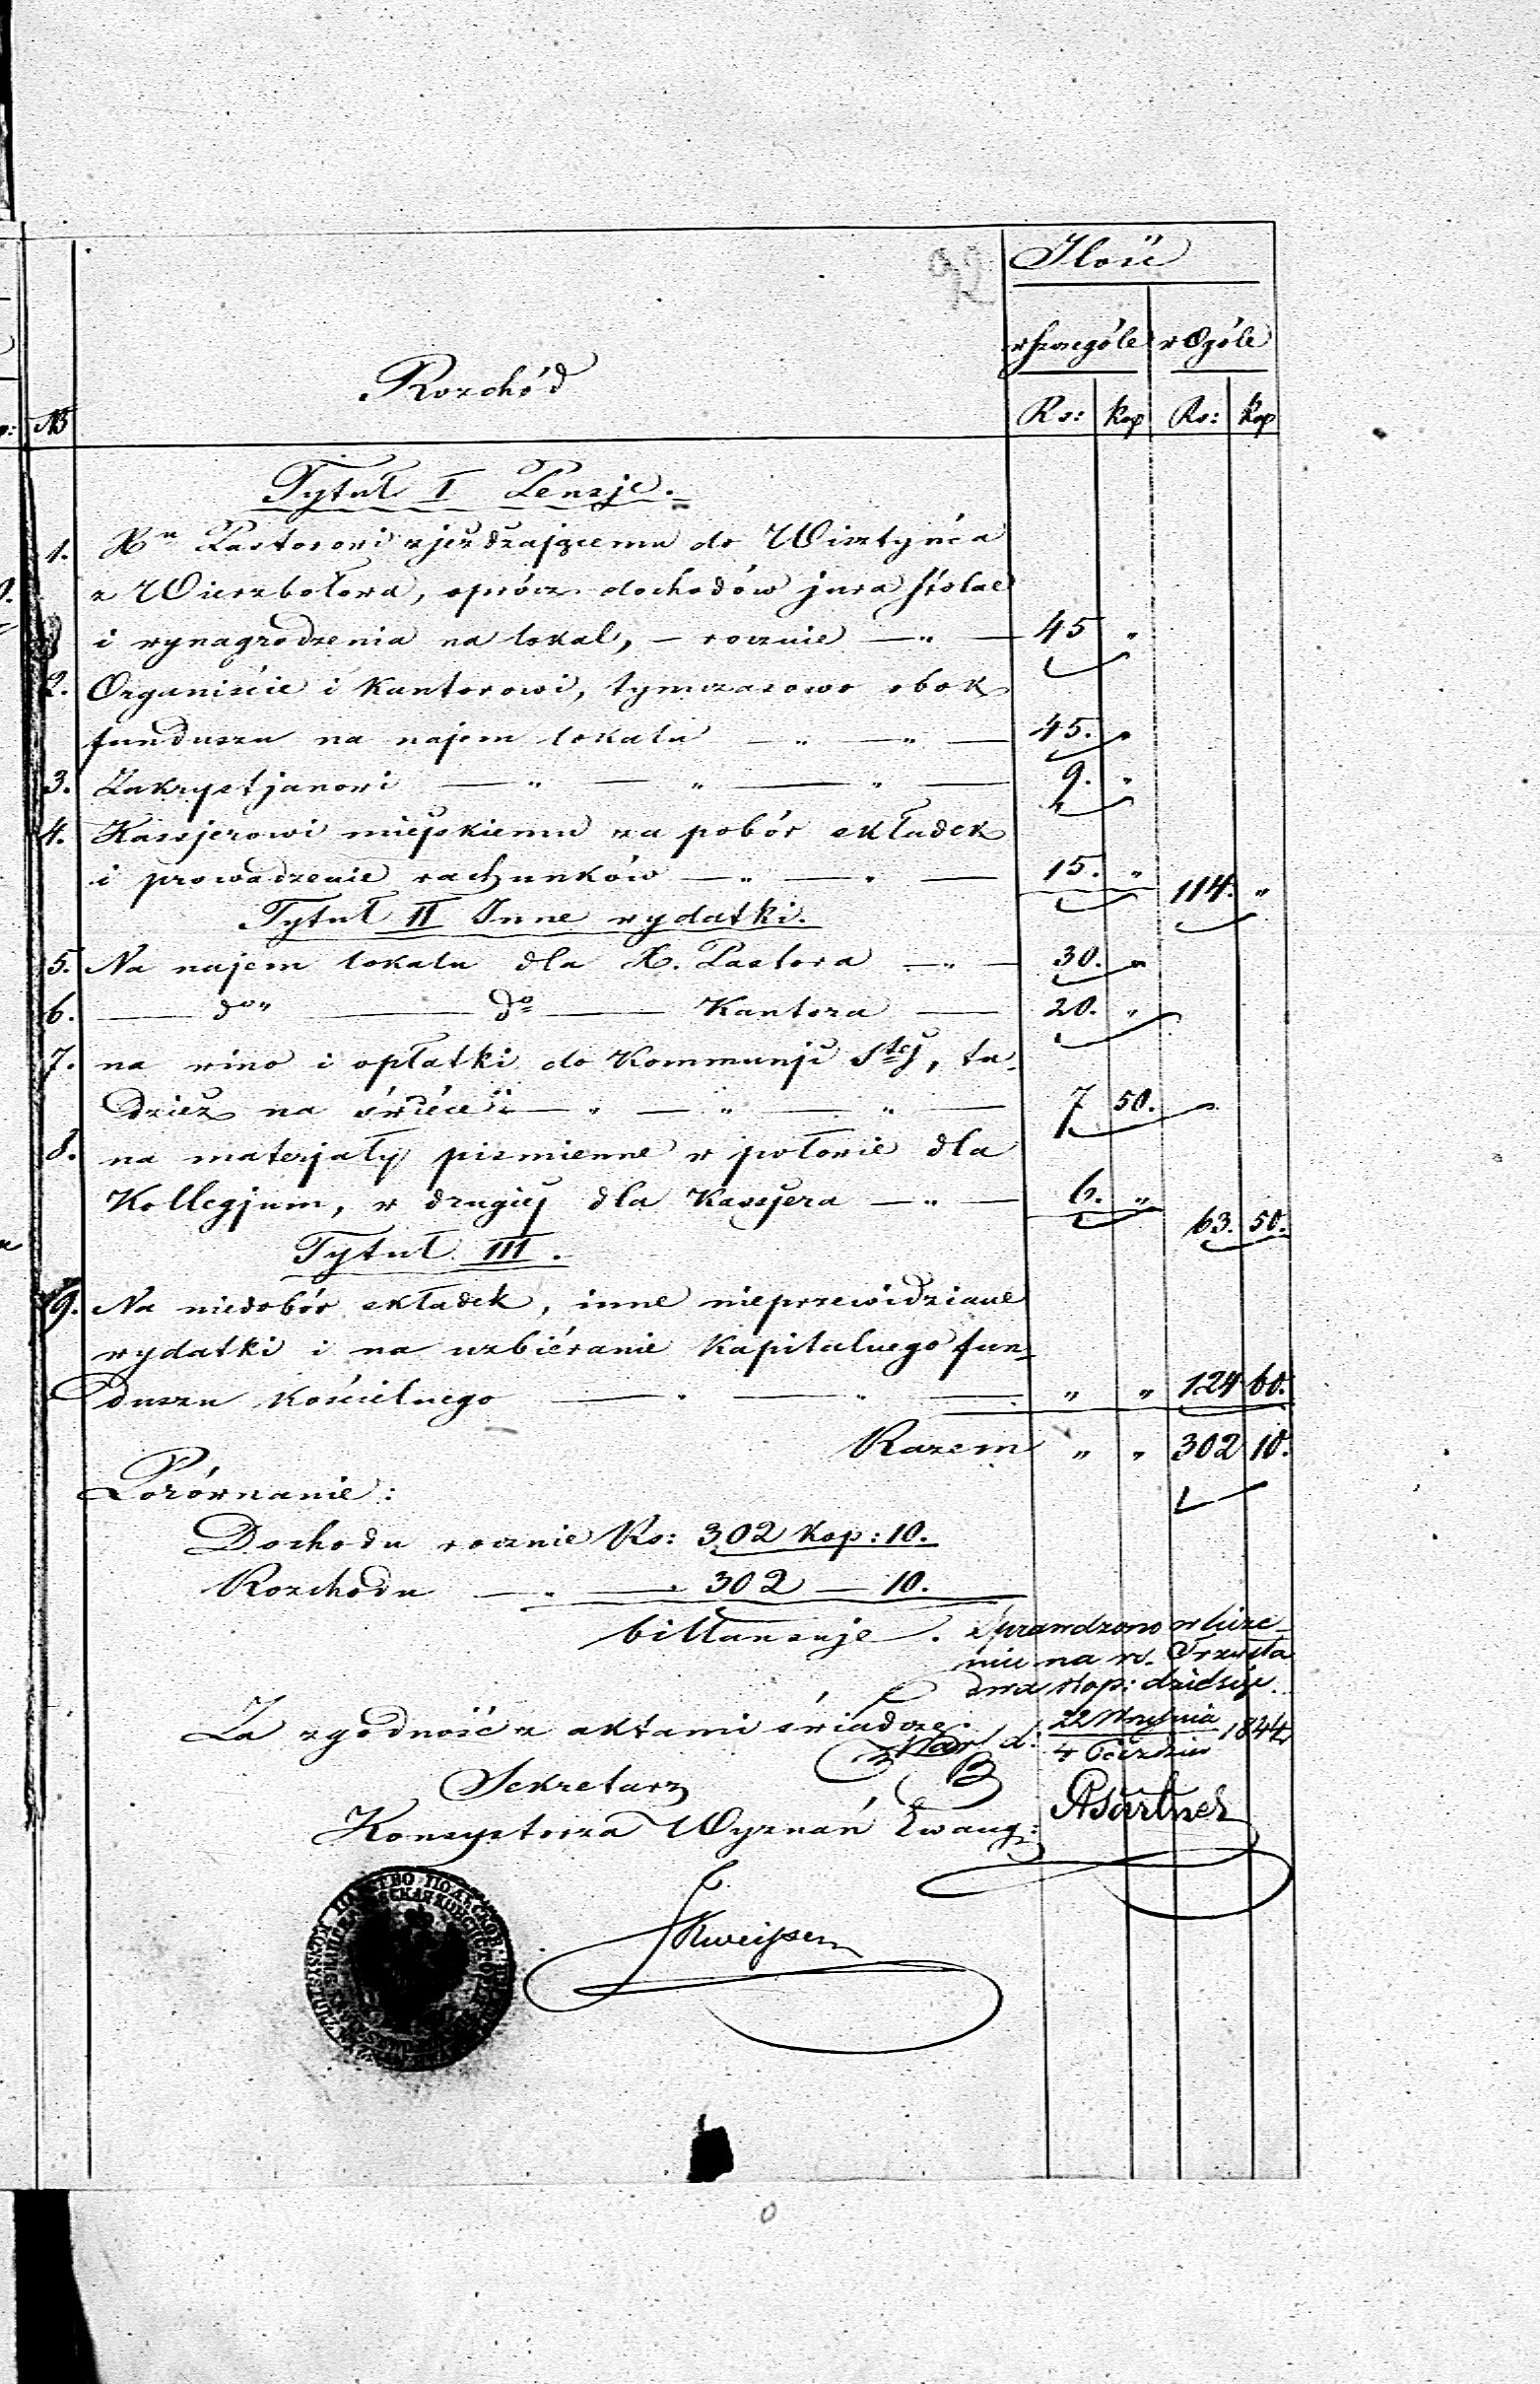 92
Ilość
w szczególe w Ogóle
Rozchód
№ Rs: Kop Rs: Kop
Tytuł I Pensje.
1. Xu Pastorowi zjeżdżającemu do Wisztyńca
z Wierzbołowa, oprócz dochodów jura stolae
i wynagrodzenia na lokal, – rocznie — " — 45 "
2. Organiście i Kantorowi, tymczasowo obok
funduszu na najem lokalu — " — " — 45. "
3. Zakrystjanowi — " — " — " — 9. "
4. Kassjerowi miejskiemu za pobór składek
i prowadzenie rachunków — " — " — 15. " 114. "
Tytuł II Inne wydatki.
5. Na najem lokalu dla X. Pastora — " — 30. "
6. — do " — do — Kantora — 20. "
7. na wino i opłatki do Kommunji Stej, tu-
dzież na świéce — " — " — " — 7 50.
8. na materjały piśmienne w połowie dla
Kollegjum, w drugiej dla Kassjera — " — 6. " 63. 50.
Tytuł III.
9. Na niedobór składek, inne nieprzewidziane
wydatki i na uzbiéranie Kapitalnego fun-
duszu kościelnego — " — " — " " 124 60.
Razem " " 302 10.
Porównanie:
Dochodu rocznie Rs: 302 Kop: 10.
Rozchodu — " — 302 — 10.
billansuje.
Sprawdzono w licze-
niu na rs. Trzysta
dwa kop: dziesięć.
Za zgodność z aktami świadczę
d: 22 Września / 4 Paździer 1844
Sekretarz
Konsystorza Wyznań Ewang: